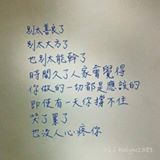 別太善良了
別太大方了
也別太能幹了
時間久了人家會覺得
你做的一切都是應該的
即使有一天你撐不住
哭了累了
也沒人心疼你